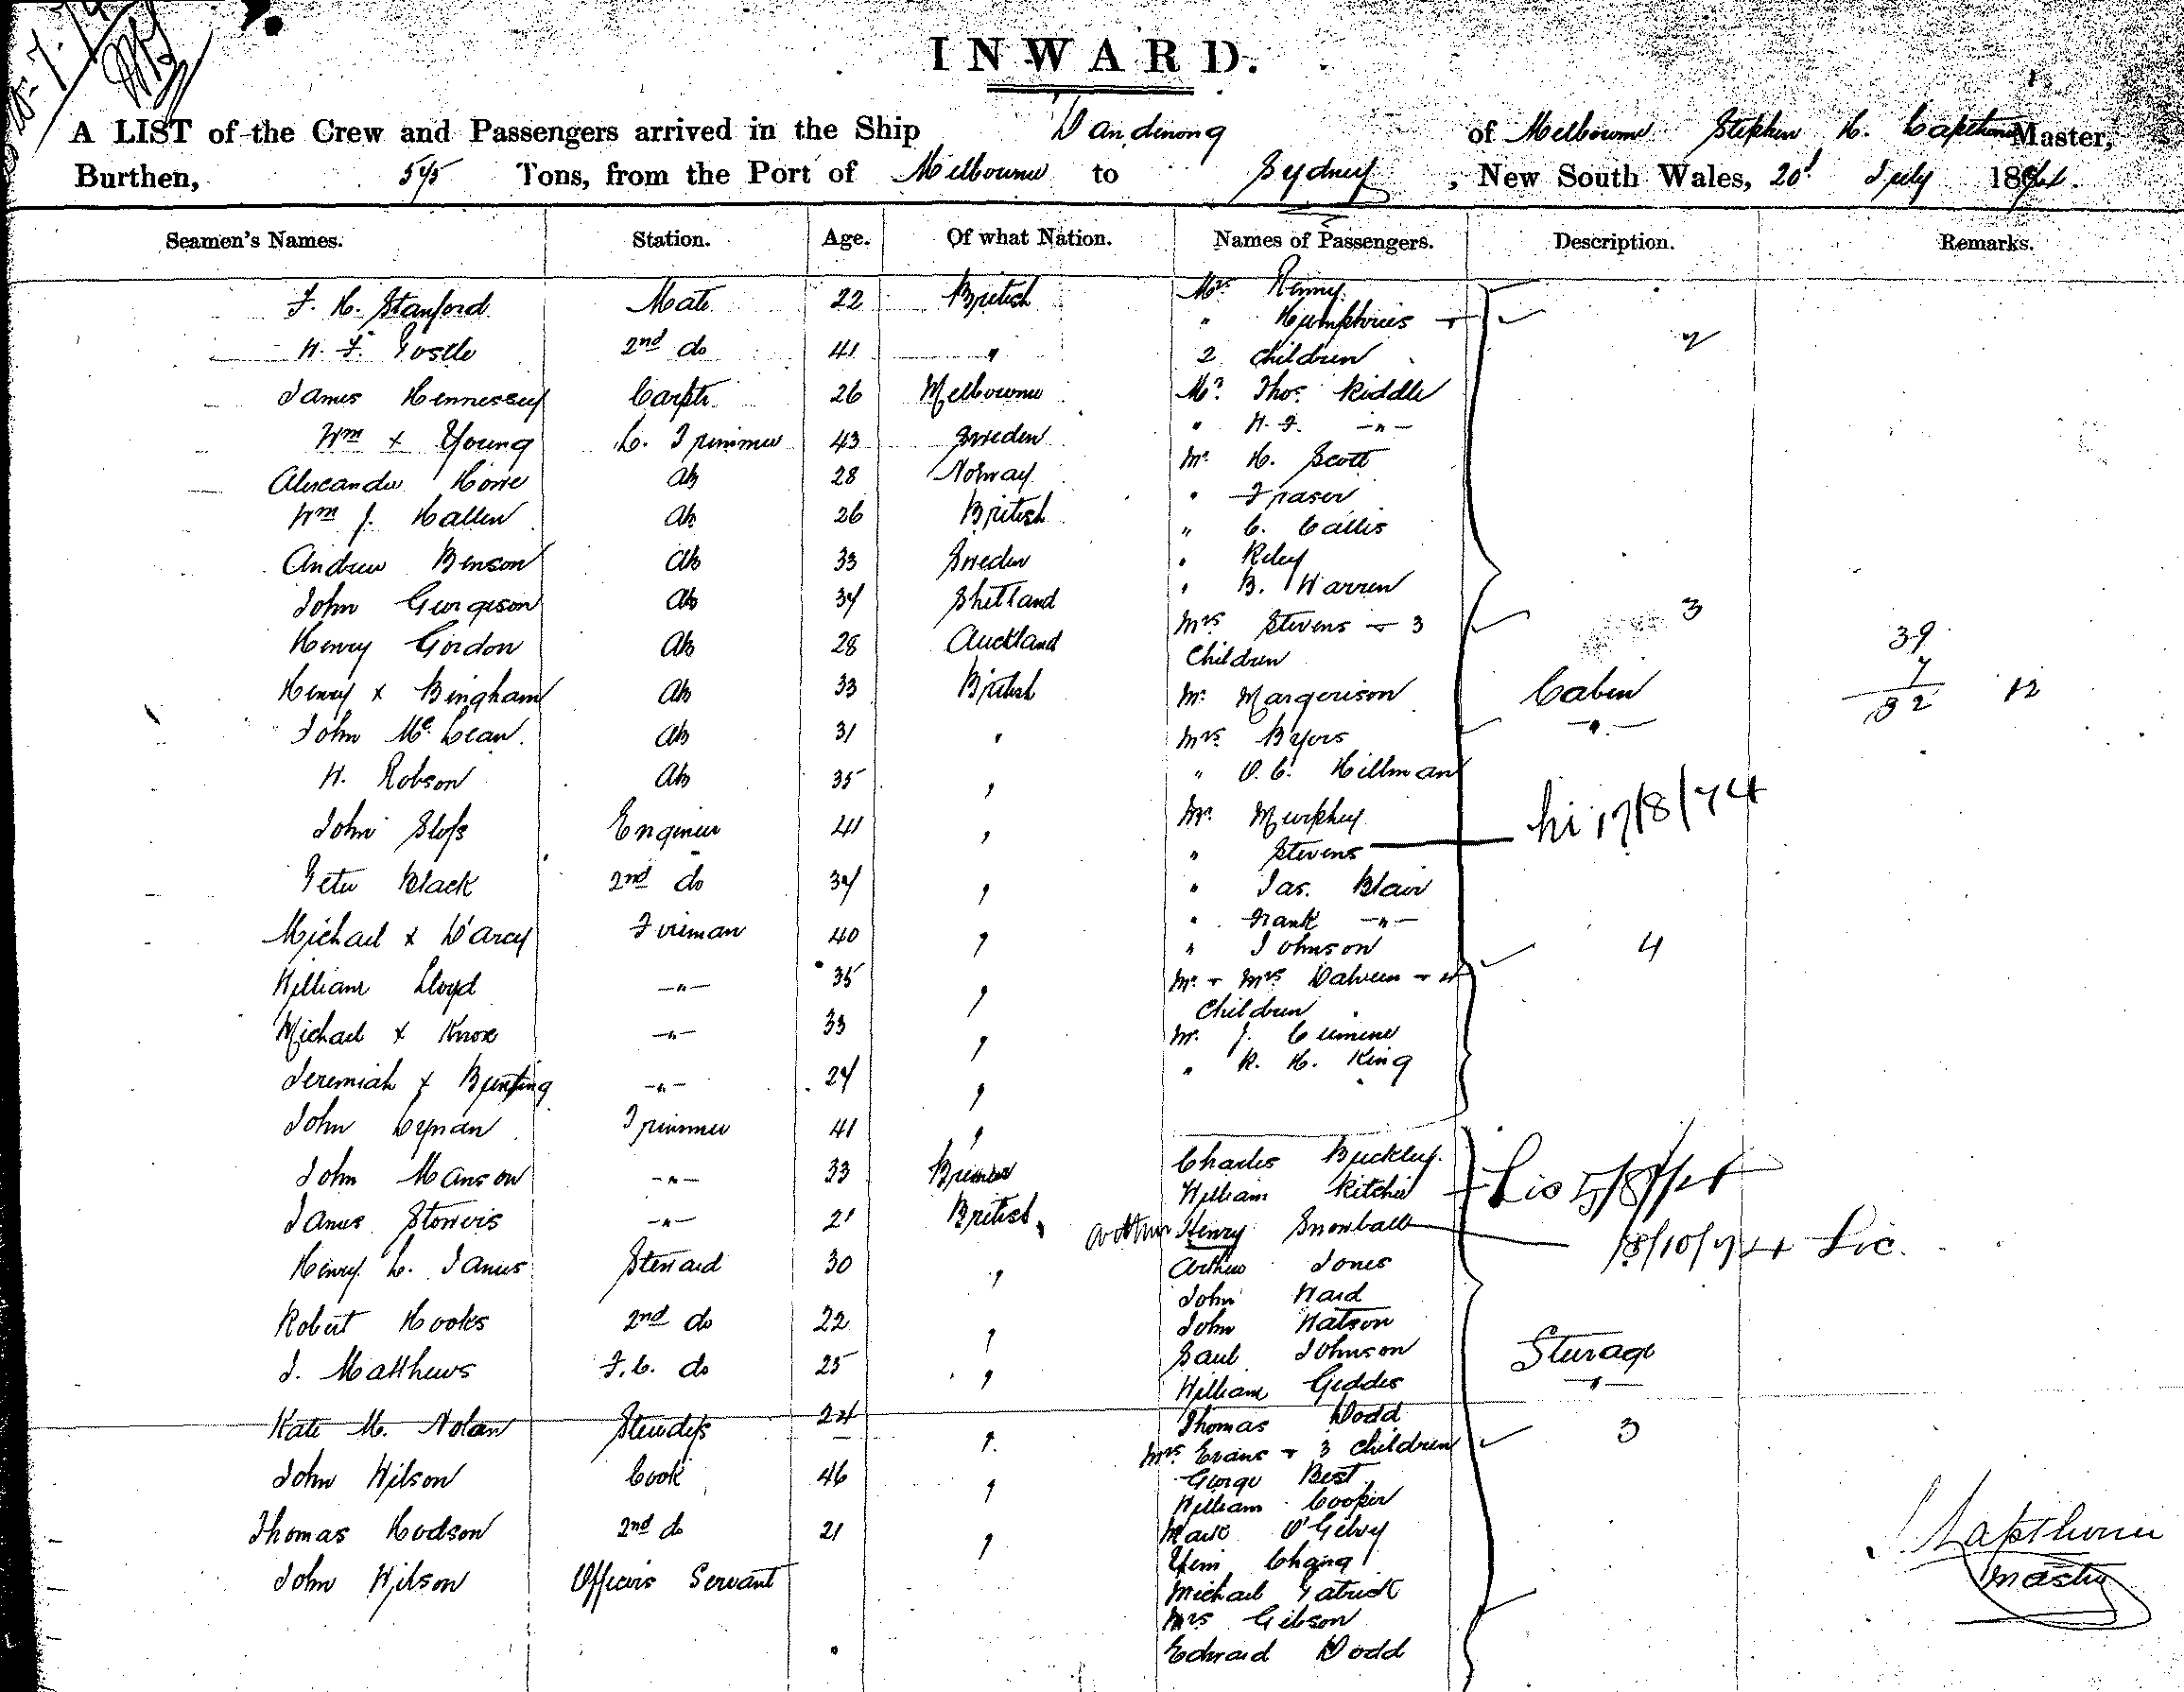 INWARD.
A LIST of the Crew and Passengers arrived in the Ship Dandenong of Melbourne Stephen Lapthorne Master,
Burthen, 545 Tons, from the Port of Melbourne to Sydney, New South Wales, 20 July 1874.
Seamen's Names. Station. Age. Of what Nation. Names of Passengers. Description. Remarks.
F. H. Stanford Mate 22 British Mrs Renny
" Humphries + 7
W. F. Postle 2nd do 41 " 2 Children
James Hennessey Carptr 26 Melbourne Mr Thos. Riddle
Wm x Young L. Trimmer 43 Sweden " W. F. -"-
Alexander Howe Ab 28 Norway Mr H. Scott
" Fraser
Wm J. Hallen Ab 26 British " C. Callis
Andrew Benson Ab 33 Sweden " Riley
" B. Warren
John Georgeson Ab 34 Shetland Mrs Stevens + 3 3
Henry Gordon Ab 28 Auckland Children 39
Henry x Bingham Ab 33 British Mr Margerison Cabin 7
32 12
John McLean Ab 31 " Mrs Byers -"-
W. Robson Ab 35 " " O. C. Hillman
John Sloss Engineer 41 " Mr Murphy 17/8/74
" Stevens
Peter Black 2nd do 34 " " Jas. Blair
" Frank -"-
Michael x D'arcy Fireman 40 " " Johnson 4
William Lloyd -"- 35 " Mr + Mrs Dalveen + 4
Children
Michael x Knox -"- 33 " Mr J. Cumine
" R. H. King
Jeremiah x Bunting -"- 24 "
John Lynan Trimmer 41 "
Charles Buckley
John Manson -"- 33 Bremen William Ritchie Lic 5/8/74
James Stowers -"- 21 British Arthur Henry Snowball 18/10/74 Lic.
Henry L. James Steward 30 " Arthur Jones
John Ward
Robert Hooks 2nd do 22 " John Watson
Saul Johnson Sturage
J. Matthews F.C. do 25 " William Geddes -"-
Kate M. Nolan Stewdss 24 " Thomas Dodd 3
Mrs Evans + 3 Children
John Wilson Cook 46 " George Best
William Cooper
Thomas Hodson 2nd do 21 " Mark O'Gilvy
Chang
John Wilson Officers Servant Michael Patrick
Mrs Gibson
Edward Dodd
Lapthorne
Master